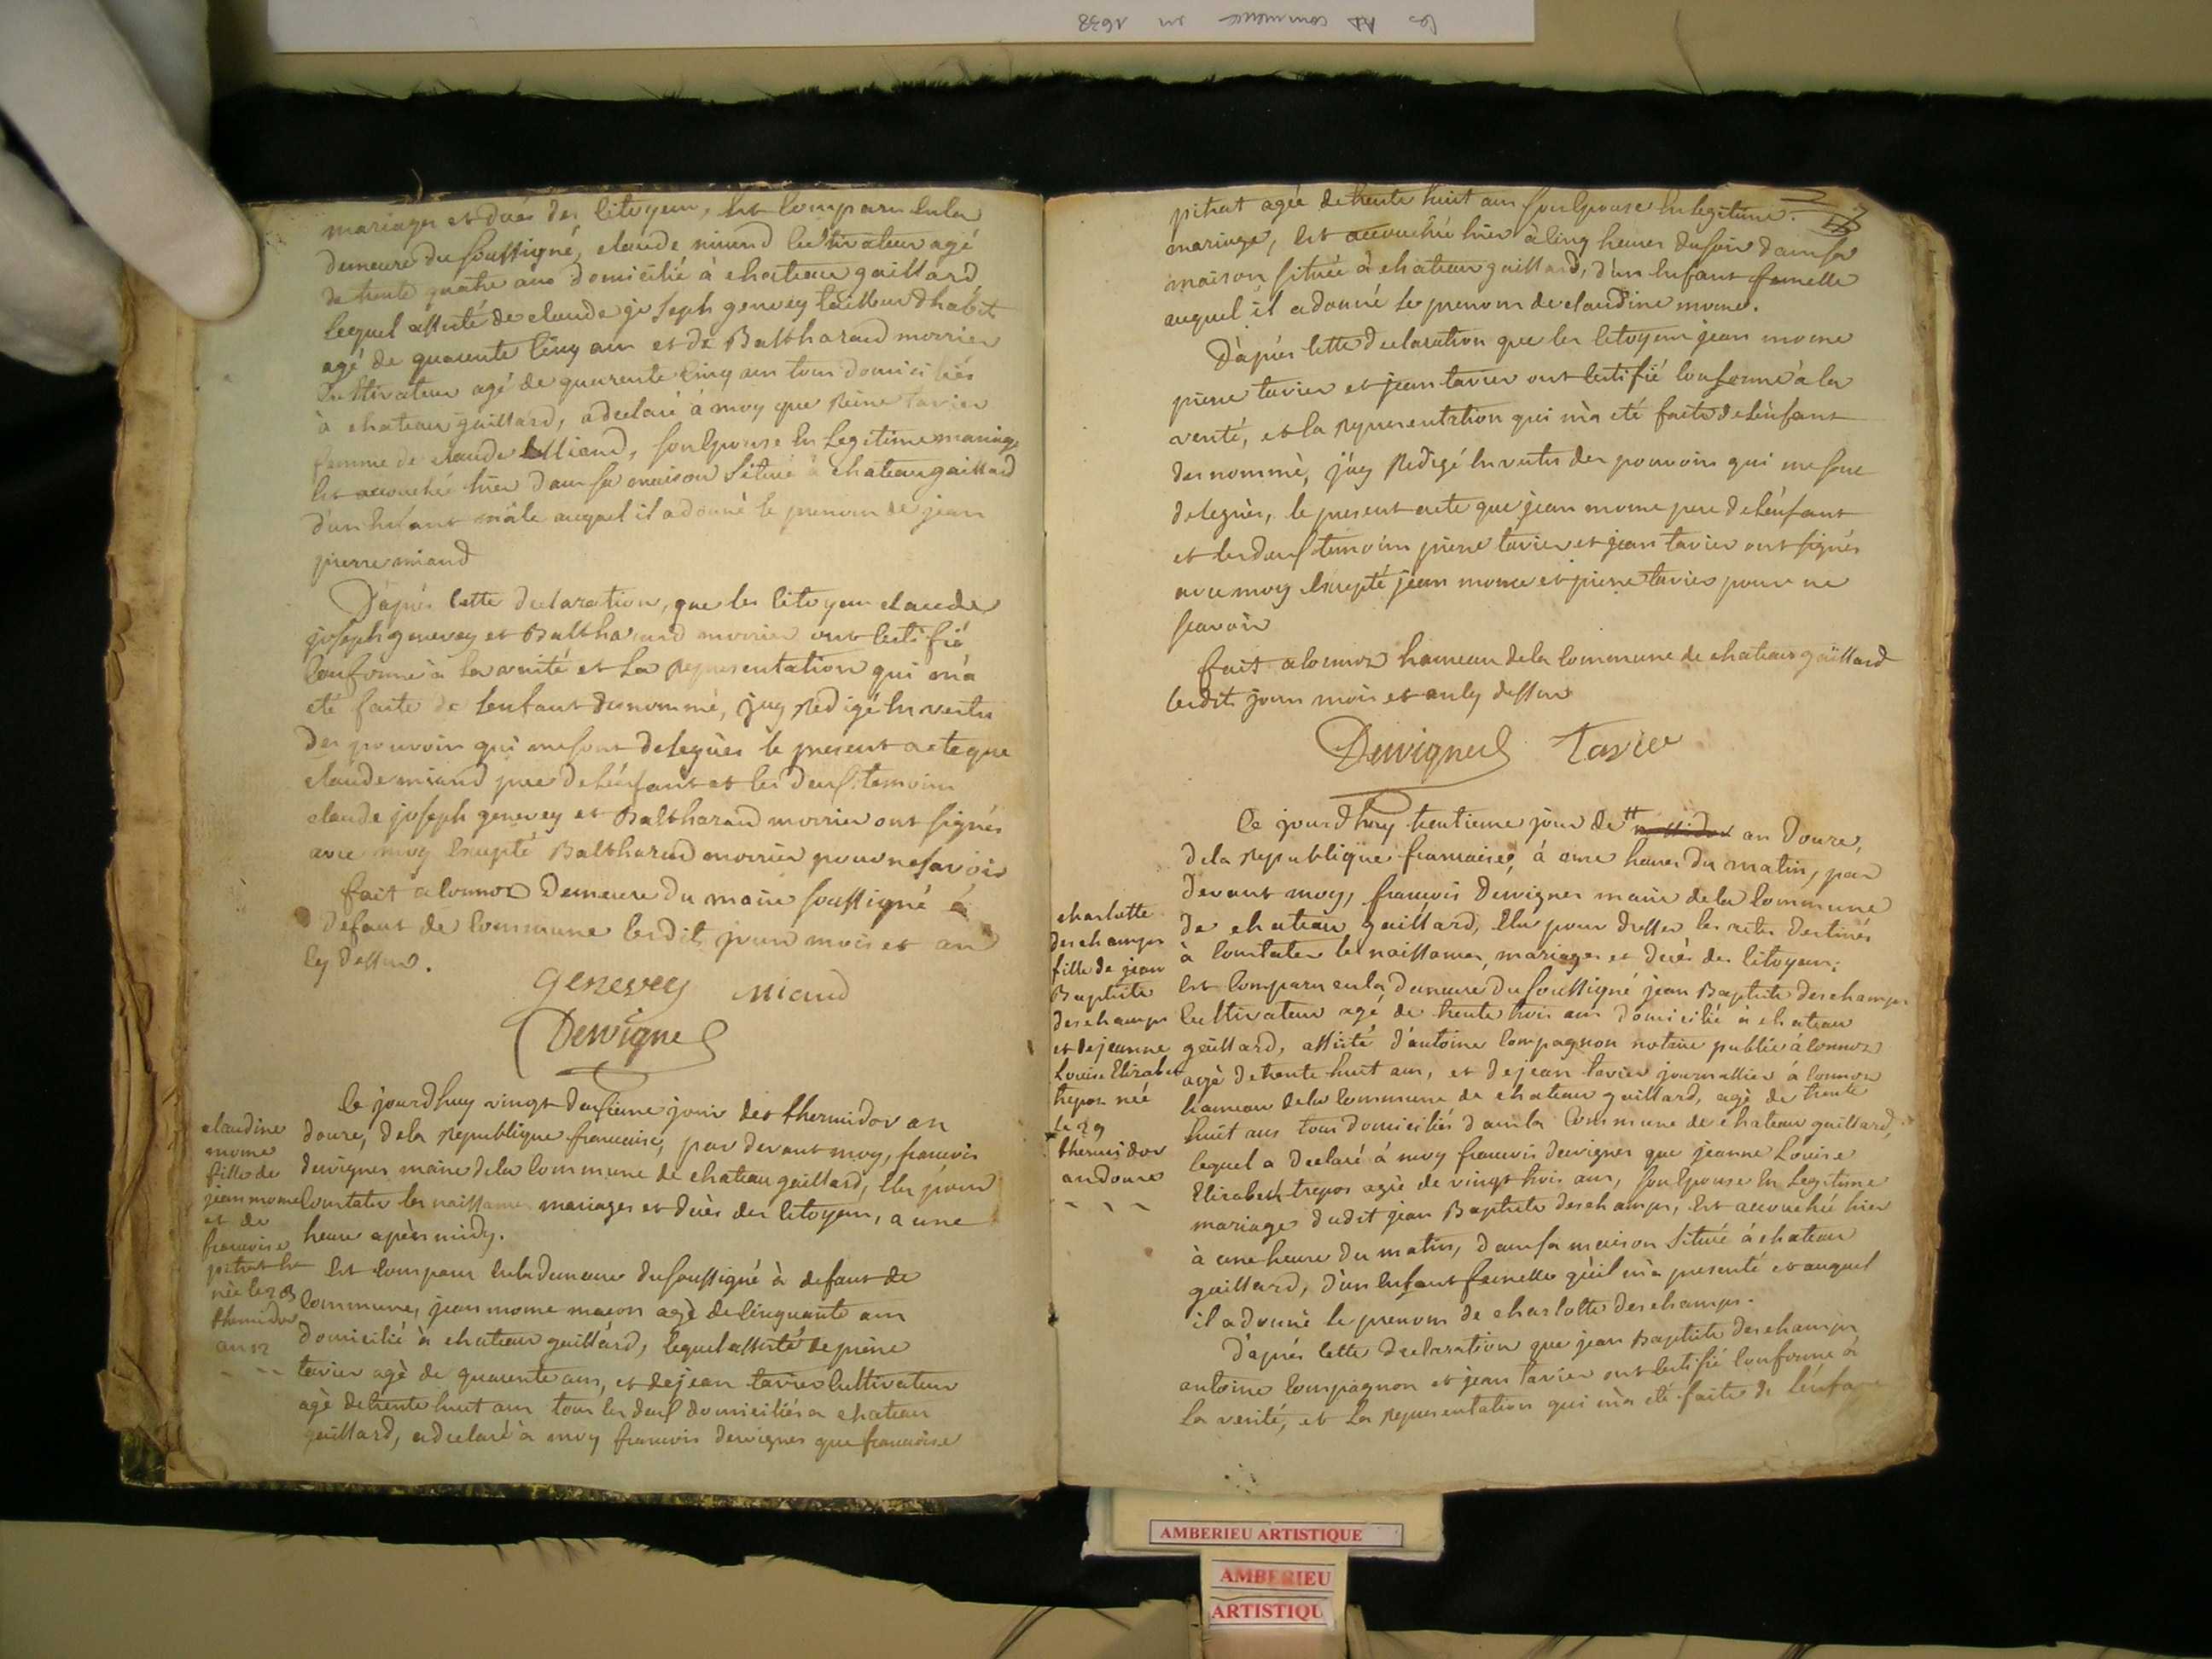 les AD commence en 1638
mariages et décés des citoyens, est comparu en la
demeure du soussigné, claude miand cultivateur agé
de trente quatre ans domicilié à chateau gaillard
lequel assisté de claude joseph genevey tailleur d'habit
agé de quarente cinq ans et de Balthazard morrier
cultivateur agé de quarente cinq ans tous domiciliés
à chateau gaillard, a declaré à moy que Reine tavier
femme de claude Miand, son Epouse en Legitime mariage
est accouchée hier dans sa maison située à chateau gaillard
d'un Enfant mâle auquel il a donné le prenom de jean
pierre miand
D'aprés cette declaration, que les citoyens claude
joseph genevey et Balthazard morrier ont certifié
conforme à la verité et La Representation qui m'a
eté faite de Lenfant denommé, j'ay Rédigé En vertu
des pouvoirs qui me sont delegués le present acte que
claude miand pere de L'énfant et les deux temoins
claude joseph genevey et Balthazard morrier ont signés
avec moy Excepté Balthazard morrier pour ne savoir
fait a Connoz Demeure du maire soussigné à
defaut de Commune lesdits jours mois et an
cy dessus.
genevey Miand
Dewignes
claudine
mome
fille de
jean mome
et de
francoise
pitrat
née le 28
thermidor
an 12
Ce jourdhuy vingt deuxieme jour de thermidor an
douze, de la Republique francaise, par devant moy, francois
dewignes maire de la Commune de chateau gaillard, Elu pour
Constater les naissances mariages et décès des Citoyens, a une
heure après midy.
Est Comparu en la demeure du soussigné à defaut de
Commune, jean mome macon agé de Cinquante ans
domicilié à chateau gaillard, lequel assisté de pierre
tavier agè de quarente ans, et de jean tavier Cultivateur
agè de trente huit ans tous les deux domiciliés a chateau
gaillard, a declaré à moy francois dewignes que francoise
pitrat agée de trente huit ans son Epouse En legitime
mariage, est accouchée hier à Cinq heures du soir dans sa
maison située à chateau gaillard, d'un Enfant femelle
auquel il a donné le prenom de claudine mome.
D'après Cette declaration que les Citoyens jean mome
pierre tavier et jean tavier ont Certifié Conforme à la
verité, et la Representation qui m'a eté faite de L'énfant
denommé, j'ay Redigé En vertu des pouvoirs qui me sont
delegués, le present acte que jean mome pere de L'énfant
et les deux temoins pierre tavier et jean tavier ont signés
avec moy Excepté jean mome et pierre tavier pour ne
scavoir
fait a Connoz hameau de la Commune de chateau gaillard
lesdits jours mois et an cy dessus
Dewignes Tavier
charlotte
deschamps
fille de jean
Baptiste
deschamps
et de jeanne
Louise Elizabet
trepoz née
le 29
thermidor
an douze
Ce jourdhuy trentieme jour de tt an Douze,
de la Republique francaise, à onze heures du matin, par
devant moy, francois Dewignes maire de la Commune
de chateau gaillard, Elu pour dresser les actes destinés
à Constater les naissances, mariages et décès des Citoyens;
Est Comparu en la demeure du soussigné jean Baptiste deschamps
Cultivateur agé de trente trois ans domicilié à chateau
gaillard, assisté d'antoine Compagnon notaire public à Connoz
agè de trente huit ans, et de jean tavier journallier à Connoz
hameau de la Commune de chateau gaillard, agè de trente
huit ans tous domiciliés dans la Commune de chateau gaillard,
lequel a declaré à moy francois dewignes que jeanne Louise
Elizabeth trepoz agée de vingt trois ans, son Epouse En Legitime
mariage dudit jean Baptiste deschamps, Est accouchée hier
à une heure du matin, dans sa maison Située à chateau
gaillard, d'un Enfant femelle qu'il m'a presenté et auquel
il a donné le prenom de charlotte deschamps.
D'aprés Cette declaration que jean Baptiste deschamps
antoine Compagnon et jean tavier ont Certifié Conforme à
la verité, et La Representation qui m'a eté faite de L'énfant
AMBERIEU ARTISTIQUE
AMBERIEU
ARTISTIQU